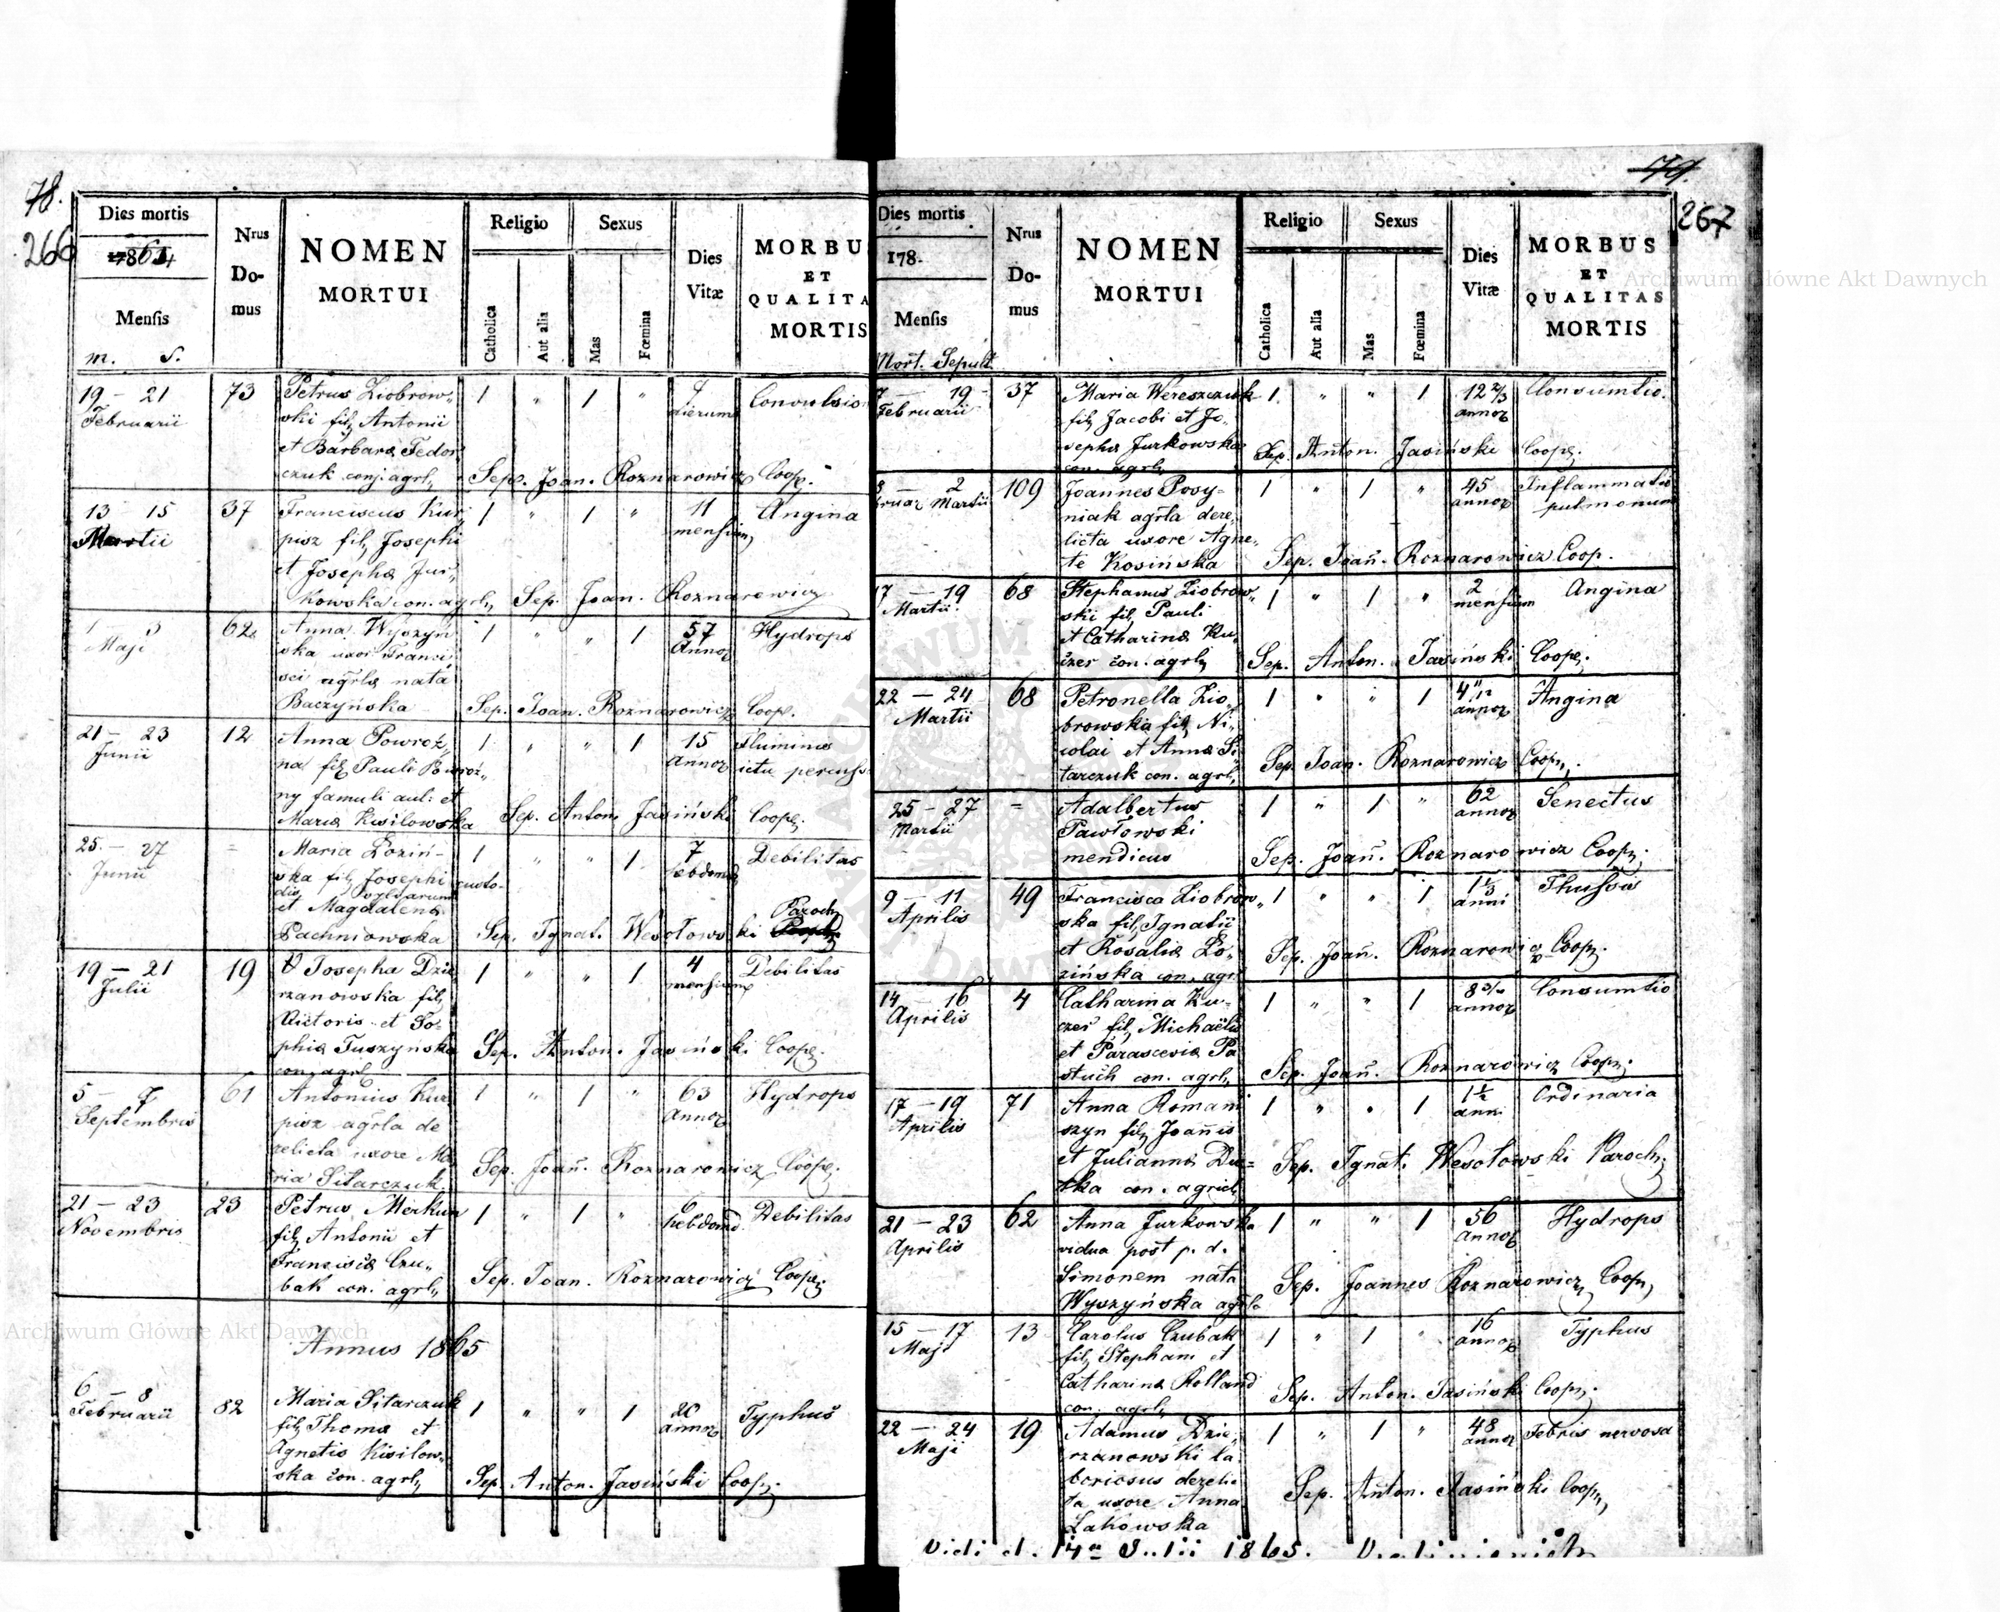 78.
266
Dies mortis
1864
Mensis
m. S.
Nrus
Do-
mus
NOMEN
MORTUI
Religio
Catholica
Aut alia
Sexus
Mas
Fœmina
Dies
Vitæ
MORBU
ET
QUALITA
MORTIS
19 – 21
Februarii
73
Petrus Ziobrow„
ski fil. Antonii
et Barbara Fedor
czuk conj. agrl.
1 „ 1 „
dierum
Convulsio
Sep. Joan. Roznarowicz Coop.
13 – 15
Martii
37
Franciscus Kur
pisz fil. Josephi
et Josepha Jur„
kowska con. agrl.
1 „ 1 „
11
mensium
Angina
Sep. Joan. Roznarowicz
1 3
Maji
62
Anna Wyszyn
ska uxor Franci
sci agrla nata
Baczyńska
1 „ „ 1
57
Annor
Hydrops
Sep. Joan. Roznarowicz Coop.
21 – 23
Junii
12
Anna Powroź„
na fil. Pauli Powroź„
ny famuli aul: et
Maria Kisilowska
1 „ „ 1
15
Annor
Fluminis
ictu percuss
Sep. Anton. Jasiński Coop.
25 – 27
Junii
=
Maria Łoziń-
ska fil. Josephi custo-
dis
et Magdalena
Pachniowska
1 „ „ 1
7
hebdomad
Debilitas
Sep. Ignat. Wesołowski Paroch
19 – 21
Julii
19
Josepha Dzie
rzanowska fil.
Victoris et So-
phia Tuszyńska
con. agrl.
1 „ „ 1
4
mensium
Debilitas
Sep. Anton. Jasiński Coop.
5 – 7
Septembris
61
Antonius Kur
pisz agrla de
relicta uxore Ma
ria Sitarczuk
1 „ 1 „
63
Annor
Hydrops
Sep. Joan. Roznarowicz Coop.
21 – 23
Novembris
23
Petrus Merkun
fil. Antonii et
Francisca Czu„
bak con. agrl.
1 „ 1 „
6
hebdomd
Debilitas
Sep. Joan. Roznarowicz Coop.
Annus 1865
6 – 8
Februarii
82
Maria Sitarczuk
fil. Thoma et
Agnetis Kisilow„
ska con. agrl.
1 „ „ 1
20
annor
Typhus
Sep. Anton. Jasiński Coop.
79.
267
Dies mortis
178.
Mensis
Mort. Sepult
Nrus
Do-
mus
NOMEN
MORTUI
Religio
Catholica
Aut alia
Sexus
Mas
Fœmina
Dies
Vitæ
MORBUS
ET
QUALITAS
MORTIS
7 – 19
Februarii
37
Maria Wereszczuk
fil. Jacobi et Jo„
sepha Jurkowska
con. agrl.
1 „ „ 1
12 2/3
annor
Consumtio.
Sep. Anton. Jasiński Coop.
8 – 2
Martii
109
Joannes Posy-
niak agrla dere„
licta uxore Agne„
te Kosińska
1 „ 1 „
45
annor
Inflammatio
pulmonum
Sep. Joan. Roznarowicz Coop.
17 – 19
Martii
68
Stephanus Ziobrow„
ski fil. Pauli
et Catharina Ku„
czer con. agrl.
1 „ 1 „
2
mensium
Angina
Sep. Anton. Jasiński Coop.
22 – 24
Martii
68
Petronella Zio„
browska fil. Ni„
colai et Anna Si
tarczuk con. agrl.
1 „ „ 1
annor
Angina
Sep. Joan. Roznarowicz Coop.
25 – 27
Martii
=
Adalbertus
Pawłowski
mendicus
1 „ 1 „
62
annor
Senectus
Sep. Joan. Roznarowicz Coop.
9 – 11
Aprilis
49
Francisca Ziobrow„
ska fil. Ignatii
et Rosalia Ło„
zińska con. agr.
1 „ „ 1
1 1/3
anni
Thussis
Sep. Joan. Roznarowicz Coop.
14 – 16
Aprilis
4
Catharina Ku-
czer fil. Michaëlis
et Parascevia Pa
stuch con. agrl.
1 „ „ 1
annor
Consumtio
Sep. Joan. Roznarowicz Coop.
17 – 19
Aprilis
71
Anna Romani
szyn fil. Joannis
et Julianna Du=
tka con. agricl.
1 „ „ 1
1 1/2
anni
Ordinaria
Sep. Ignat. Wesołowski Paroch.
21 – 23
Aprilis
62
Anna Jurkowska
vidua post p. d.
Simonem nata
Wyszyńska agrla
1 „ „ 1
56
annor
Hydrops
Sep. Joannes Roznarowicz Coop.
15 – 17
Maji
13
Carolus Czubak
fil. Stephani et
Catharina Rolland
con. agrl.
1 „ 1 „
16
annor
Typhus
Sep. Anton. Jasiński Coop.
22 – 24
Maji
19
Adamus Dzie„
rzanowski la
boriosus dereli
ta uxore Anna
Lakowska
1 „ 1 „
48
annor
Febris nervosa
Sep. Anton. Jasiński Coop.
Vidi d. 14 Julii 1865.
Archiwum Główne Akt Dawnych
Archiwum Główne Akt Dawnych